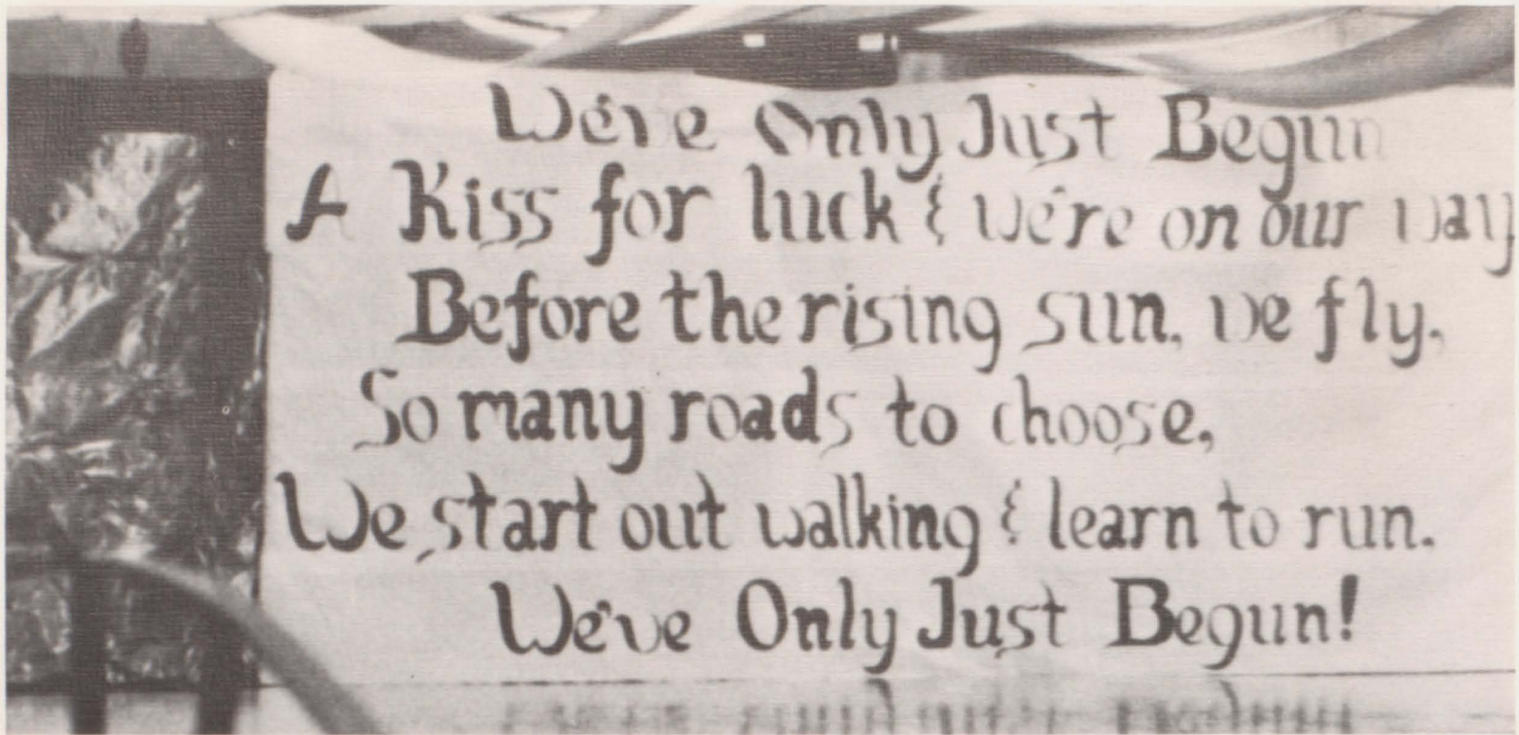 We've Only Just Begun
A Kiss for luck & we're on our way
Before the rising sun, we fly.
So many roads to choose,
We start out walking & learn to run.
We've Only Just Begun!